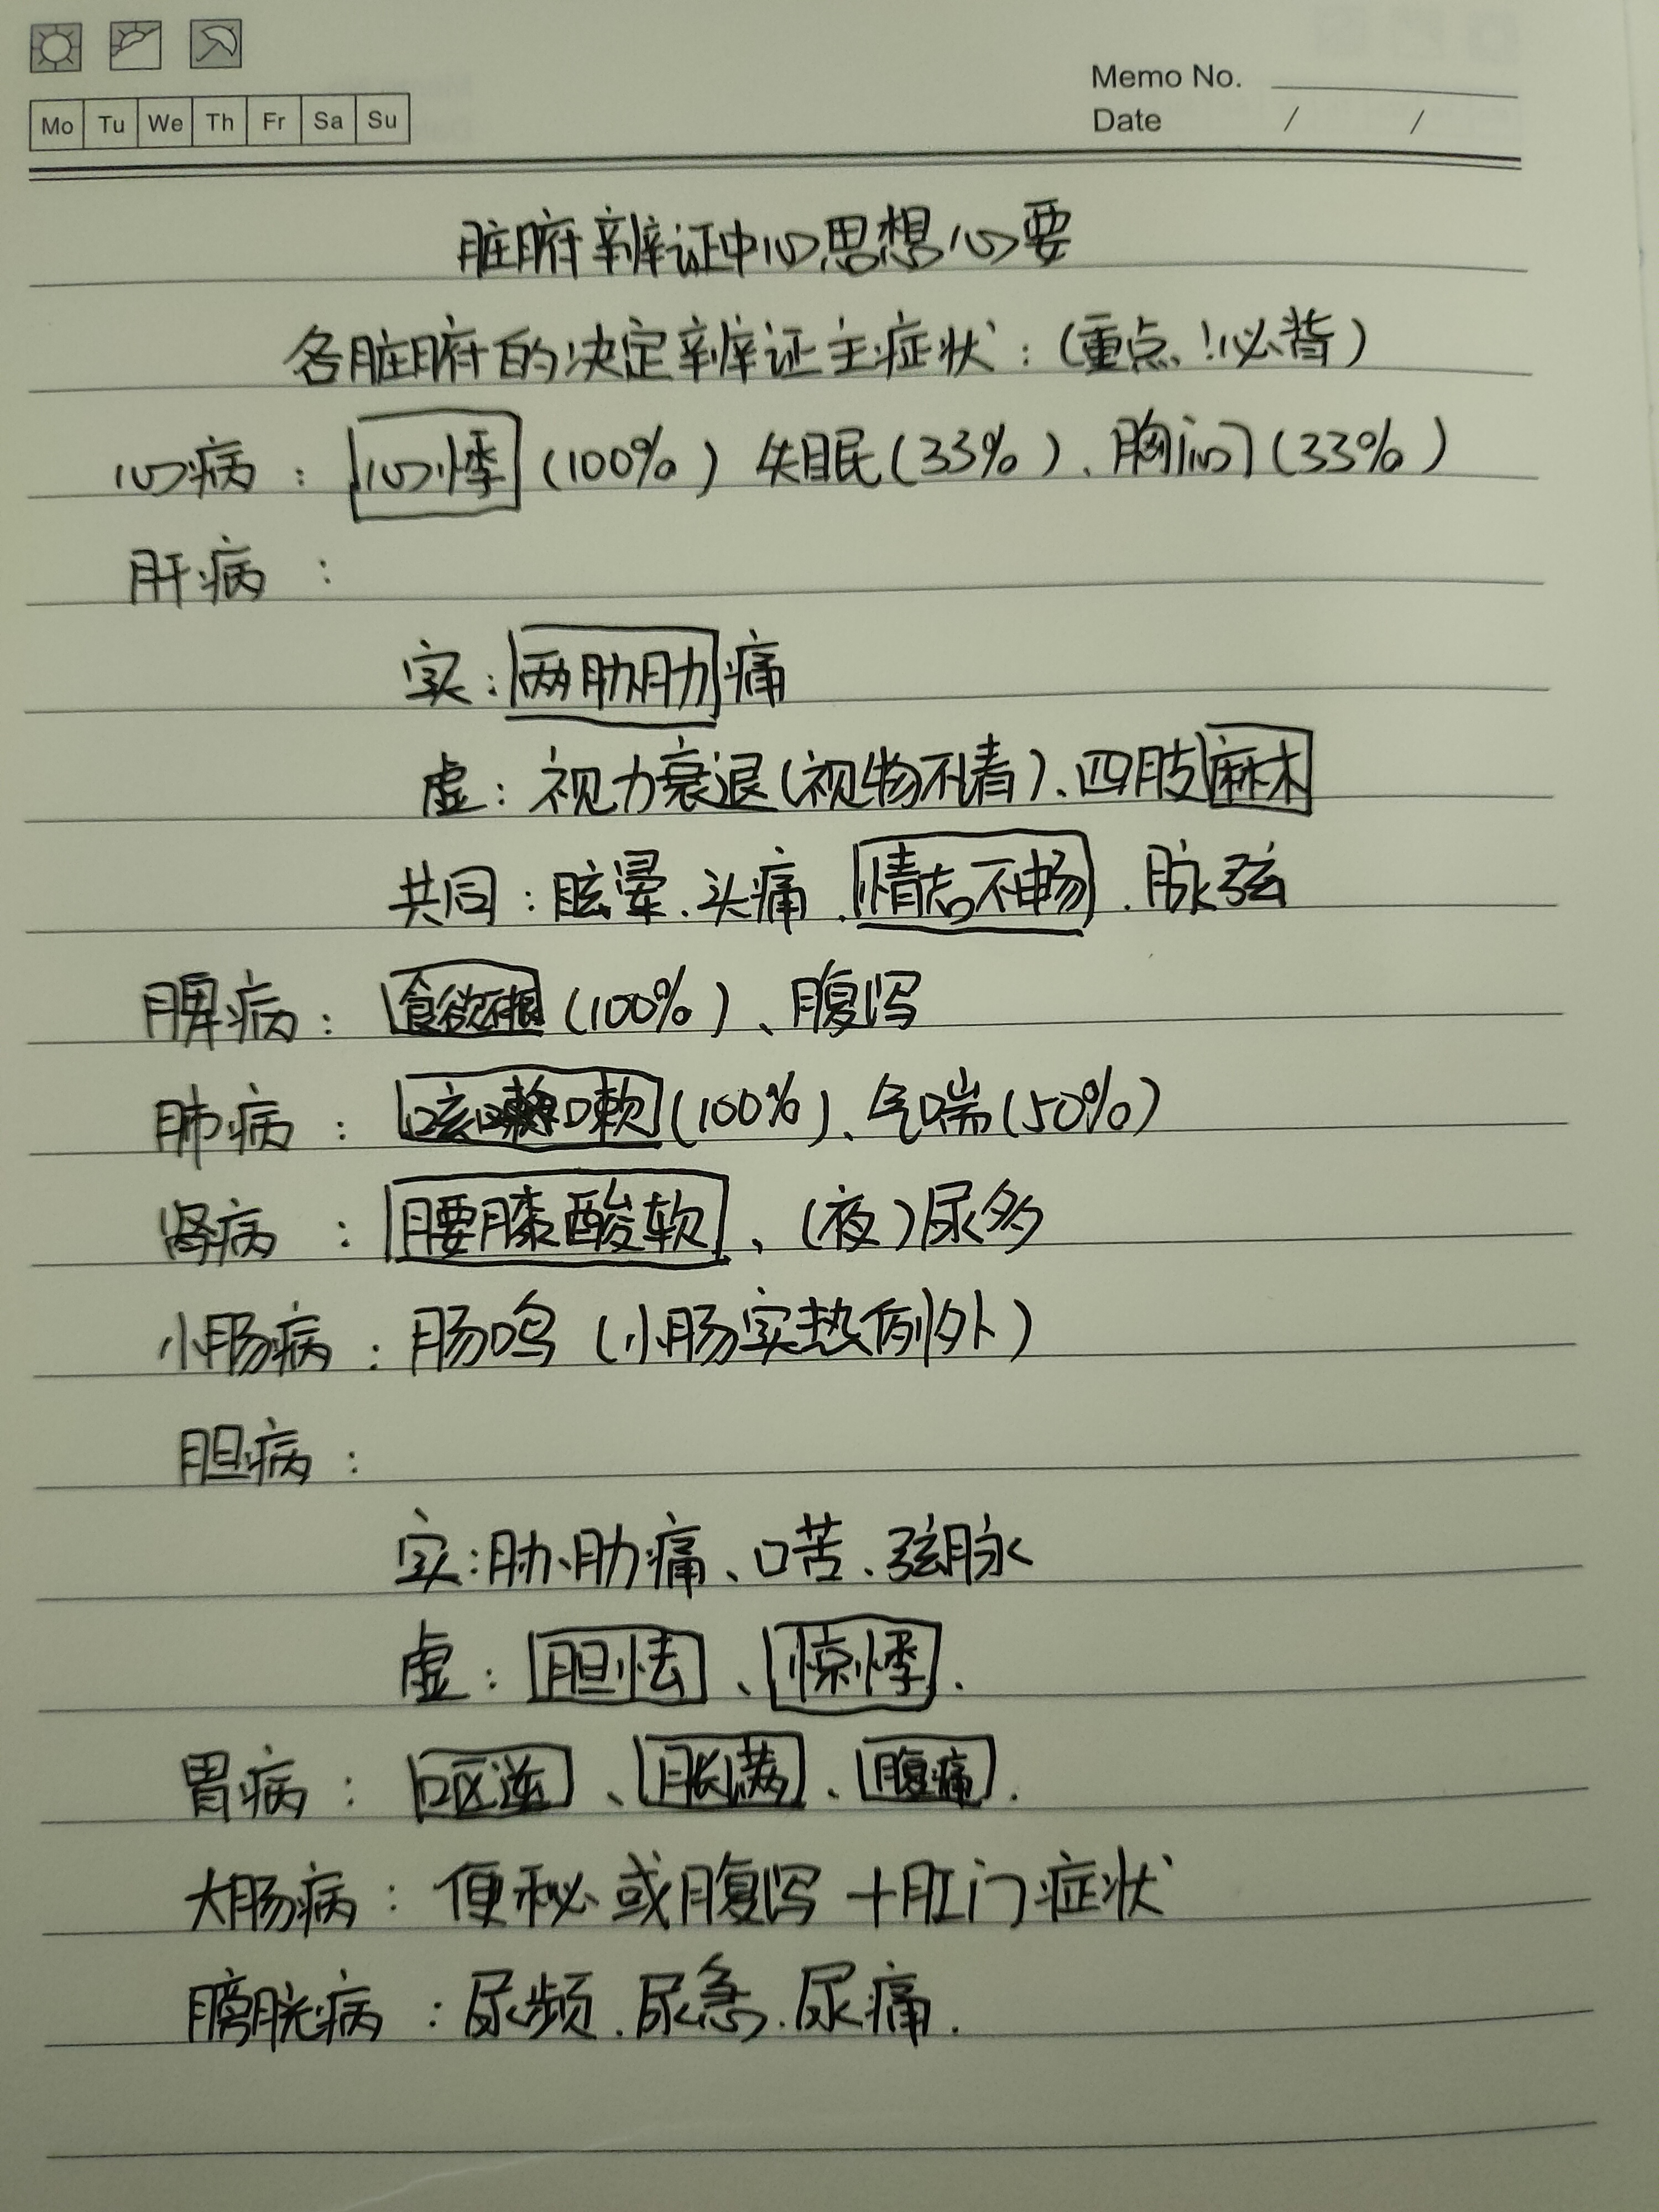 Memo No.
Mo Tu We Th Fr Sa Su
Date / /
脏腑辨证中心思想心要
各脏腑的决定辨证主症状：(重点！必背)
心病：心悸(100%) 失眠(33%)、胸闷(33%)
肝病：
实：两胁肋痛
虚：视力衰退(视物不清)、四肢麻木
共同：眩晕、头痛、情志不畅、脉弦
脾病：食欲不振(100%)、腹泻
肺病：咳嗽(100%)、气喘(50%)
肾病：腰膝酸软、(夜)尿多
小肠病：肠鸣(小肠实热例外)
胆病：
实：胁肋痛、口苦、弦脉
虚：胆怯、惊悸.
胃病：呕逆、胀满、腹痛.
大肠病：便秘或腹泻+肛门症状
膀胱病：尿频.尿急.尿痛.